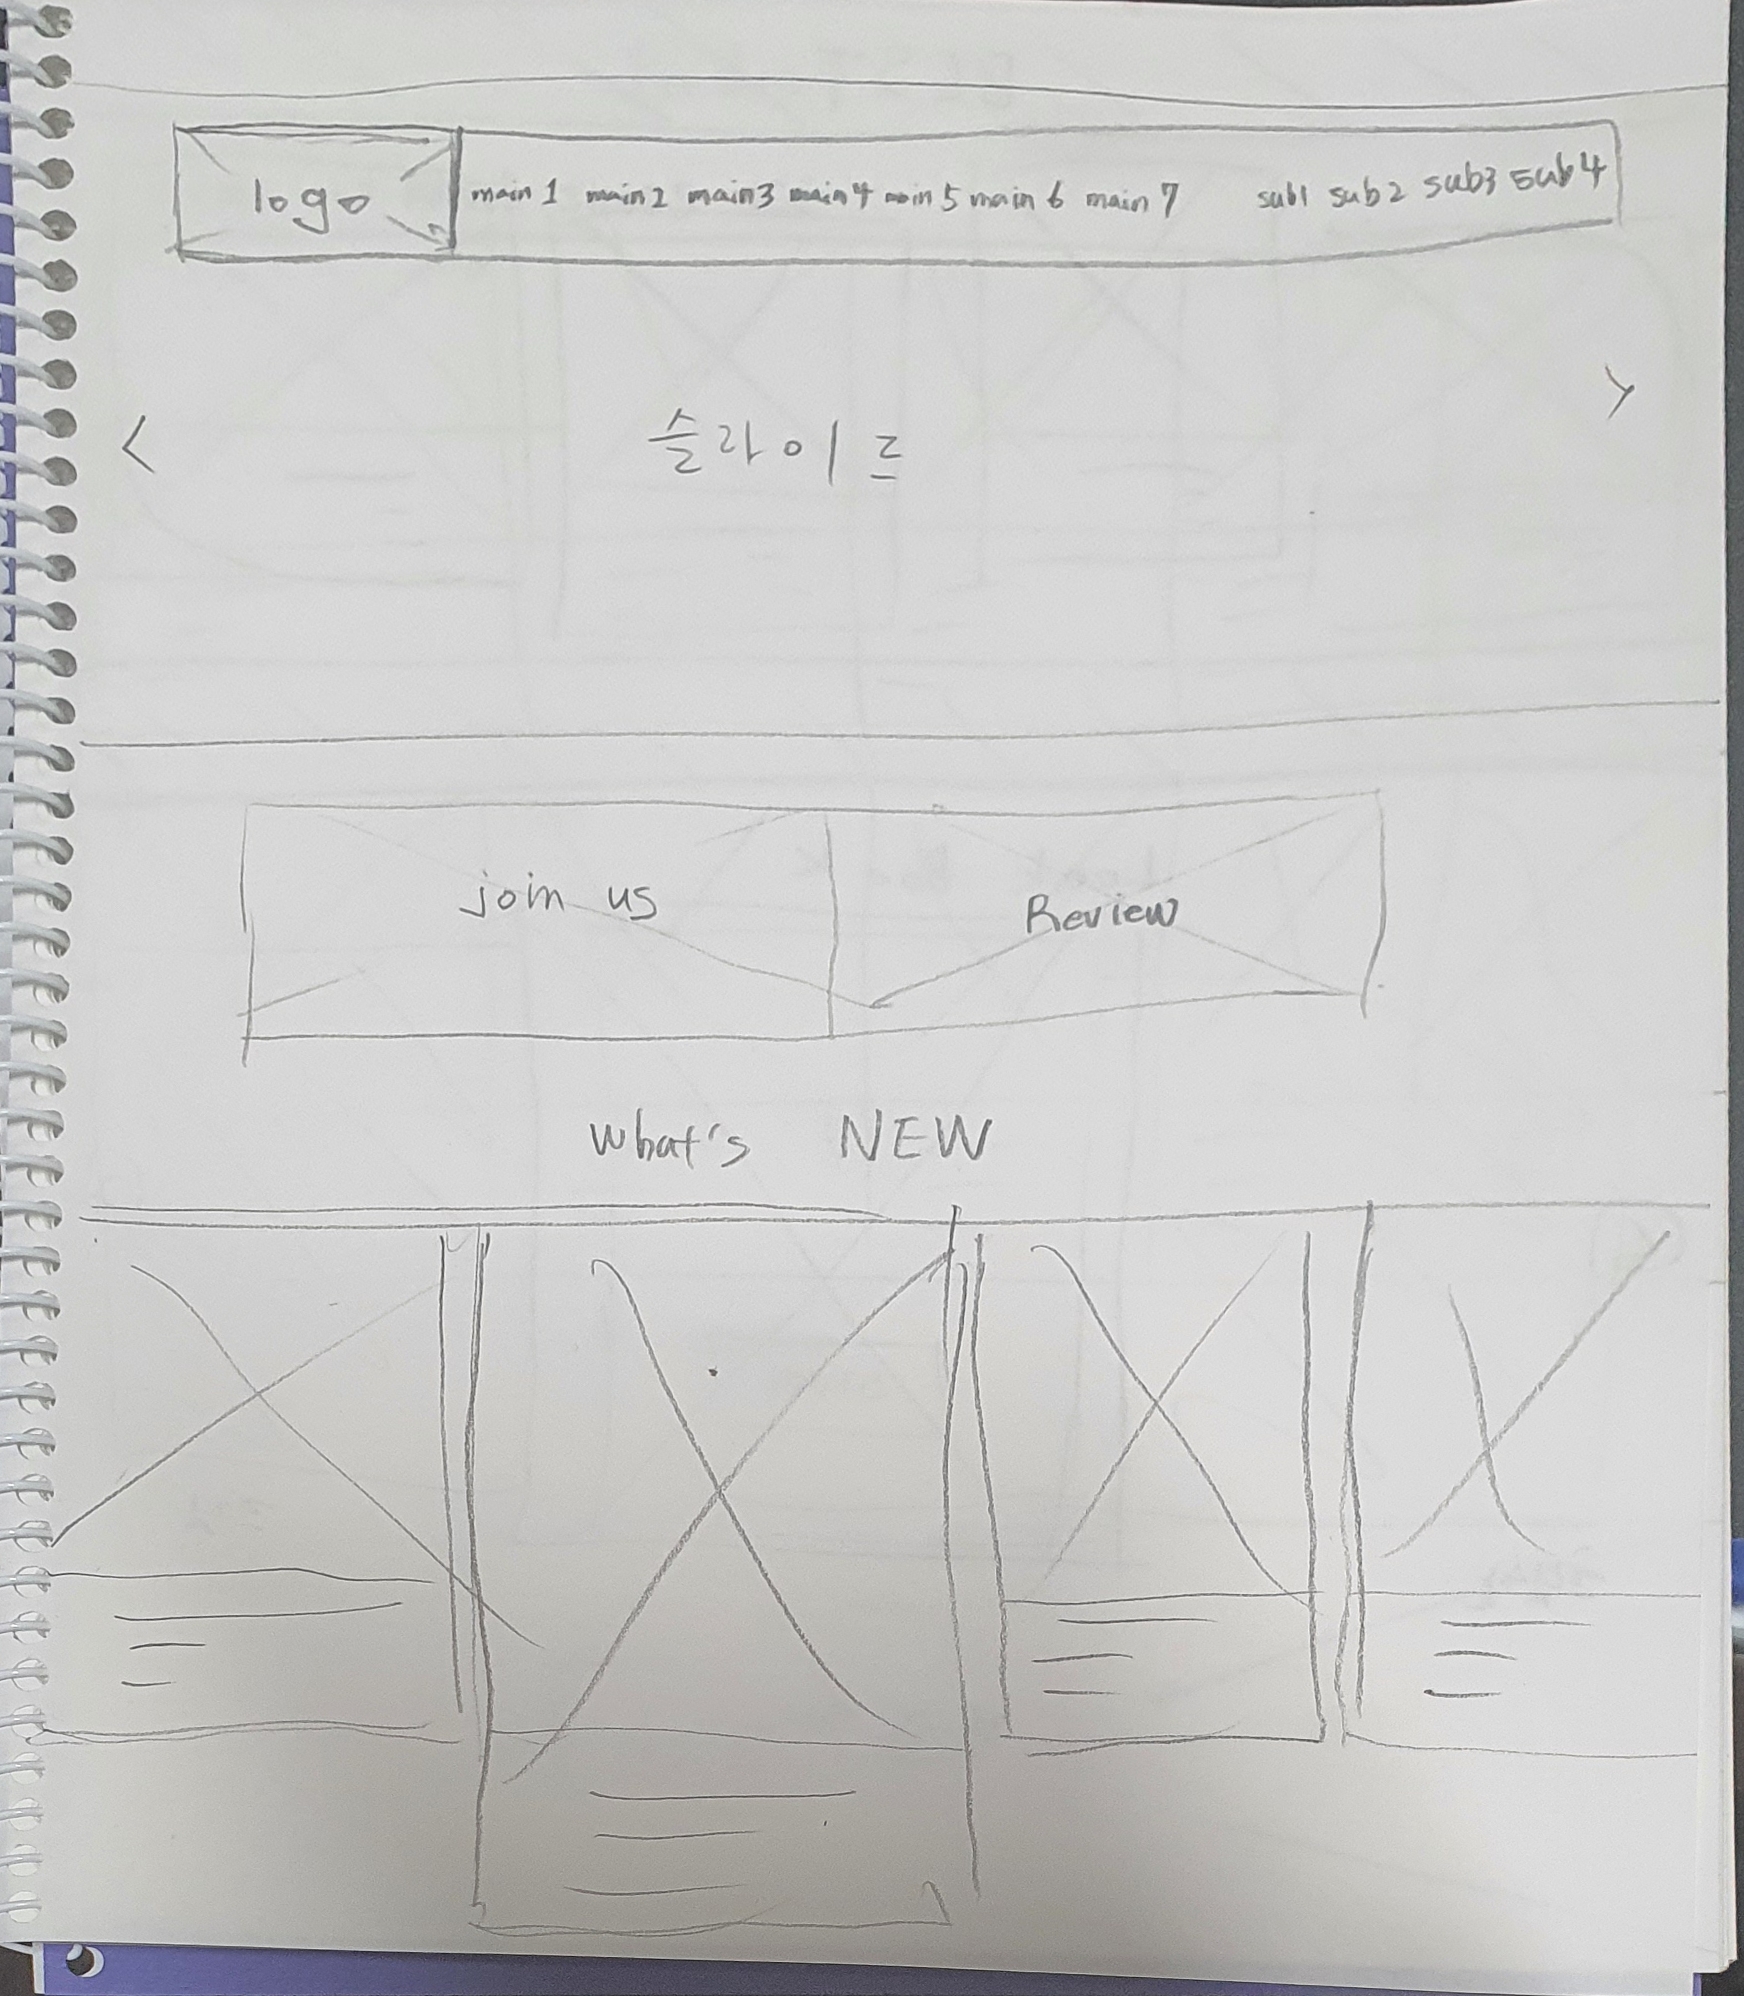 logo main 1 main 2 main 3 main 4 main 5 main 6 main 7 sub1 sub2 sub3 sub4
< 슬라이드 >
join us Review
what's NEW